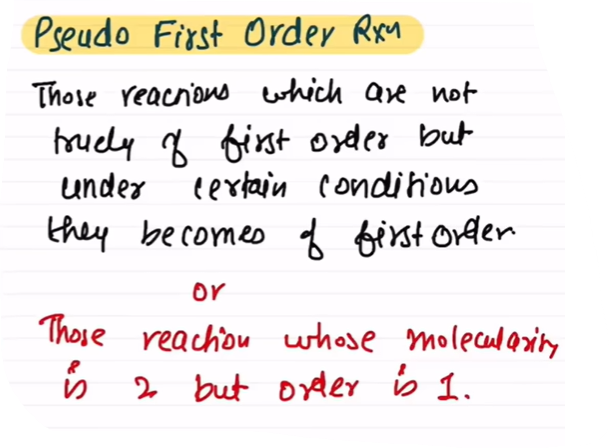 Pseudo First Order Rxn
Those reactions which are not
truely of first order but
under certain conditions
they becomes of first order.
or
Those reaction whose molecularity
is 2 but order is 1.